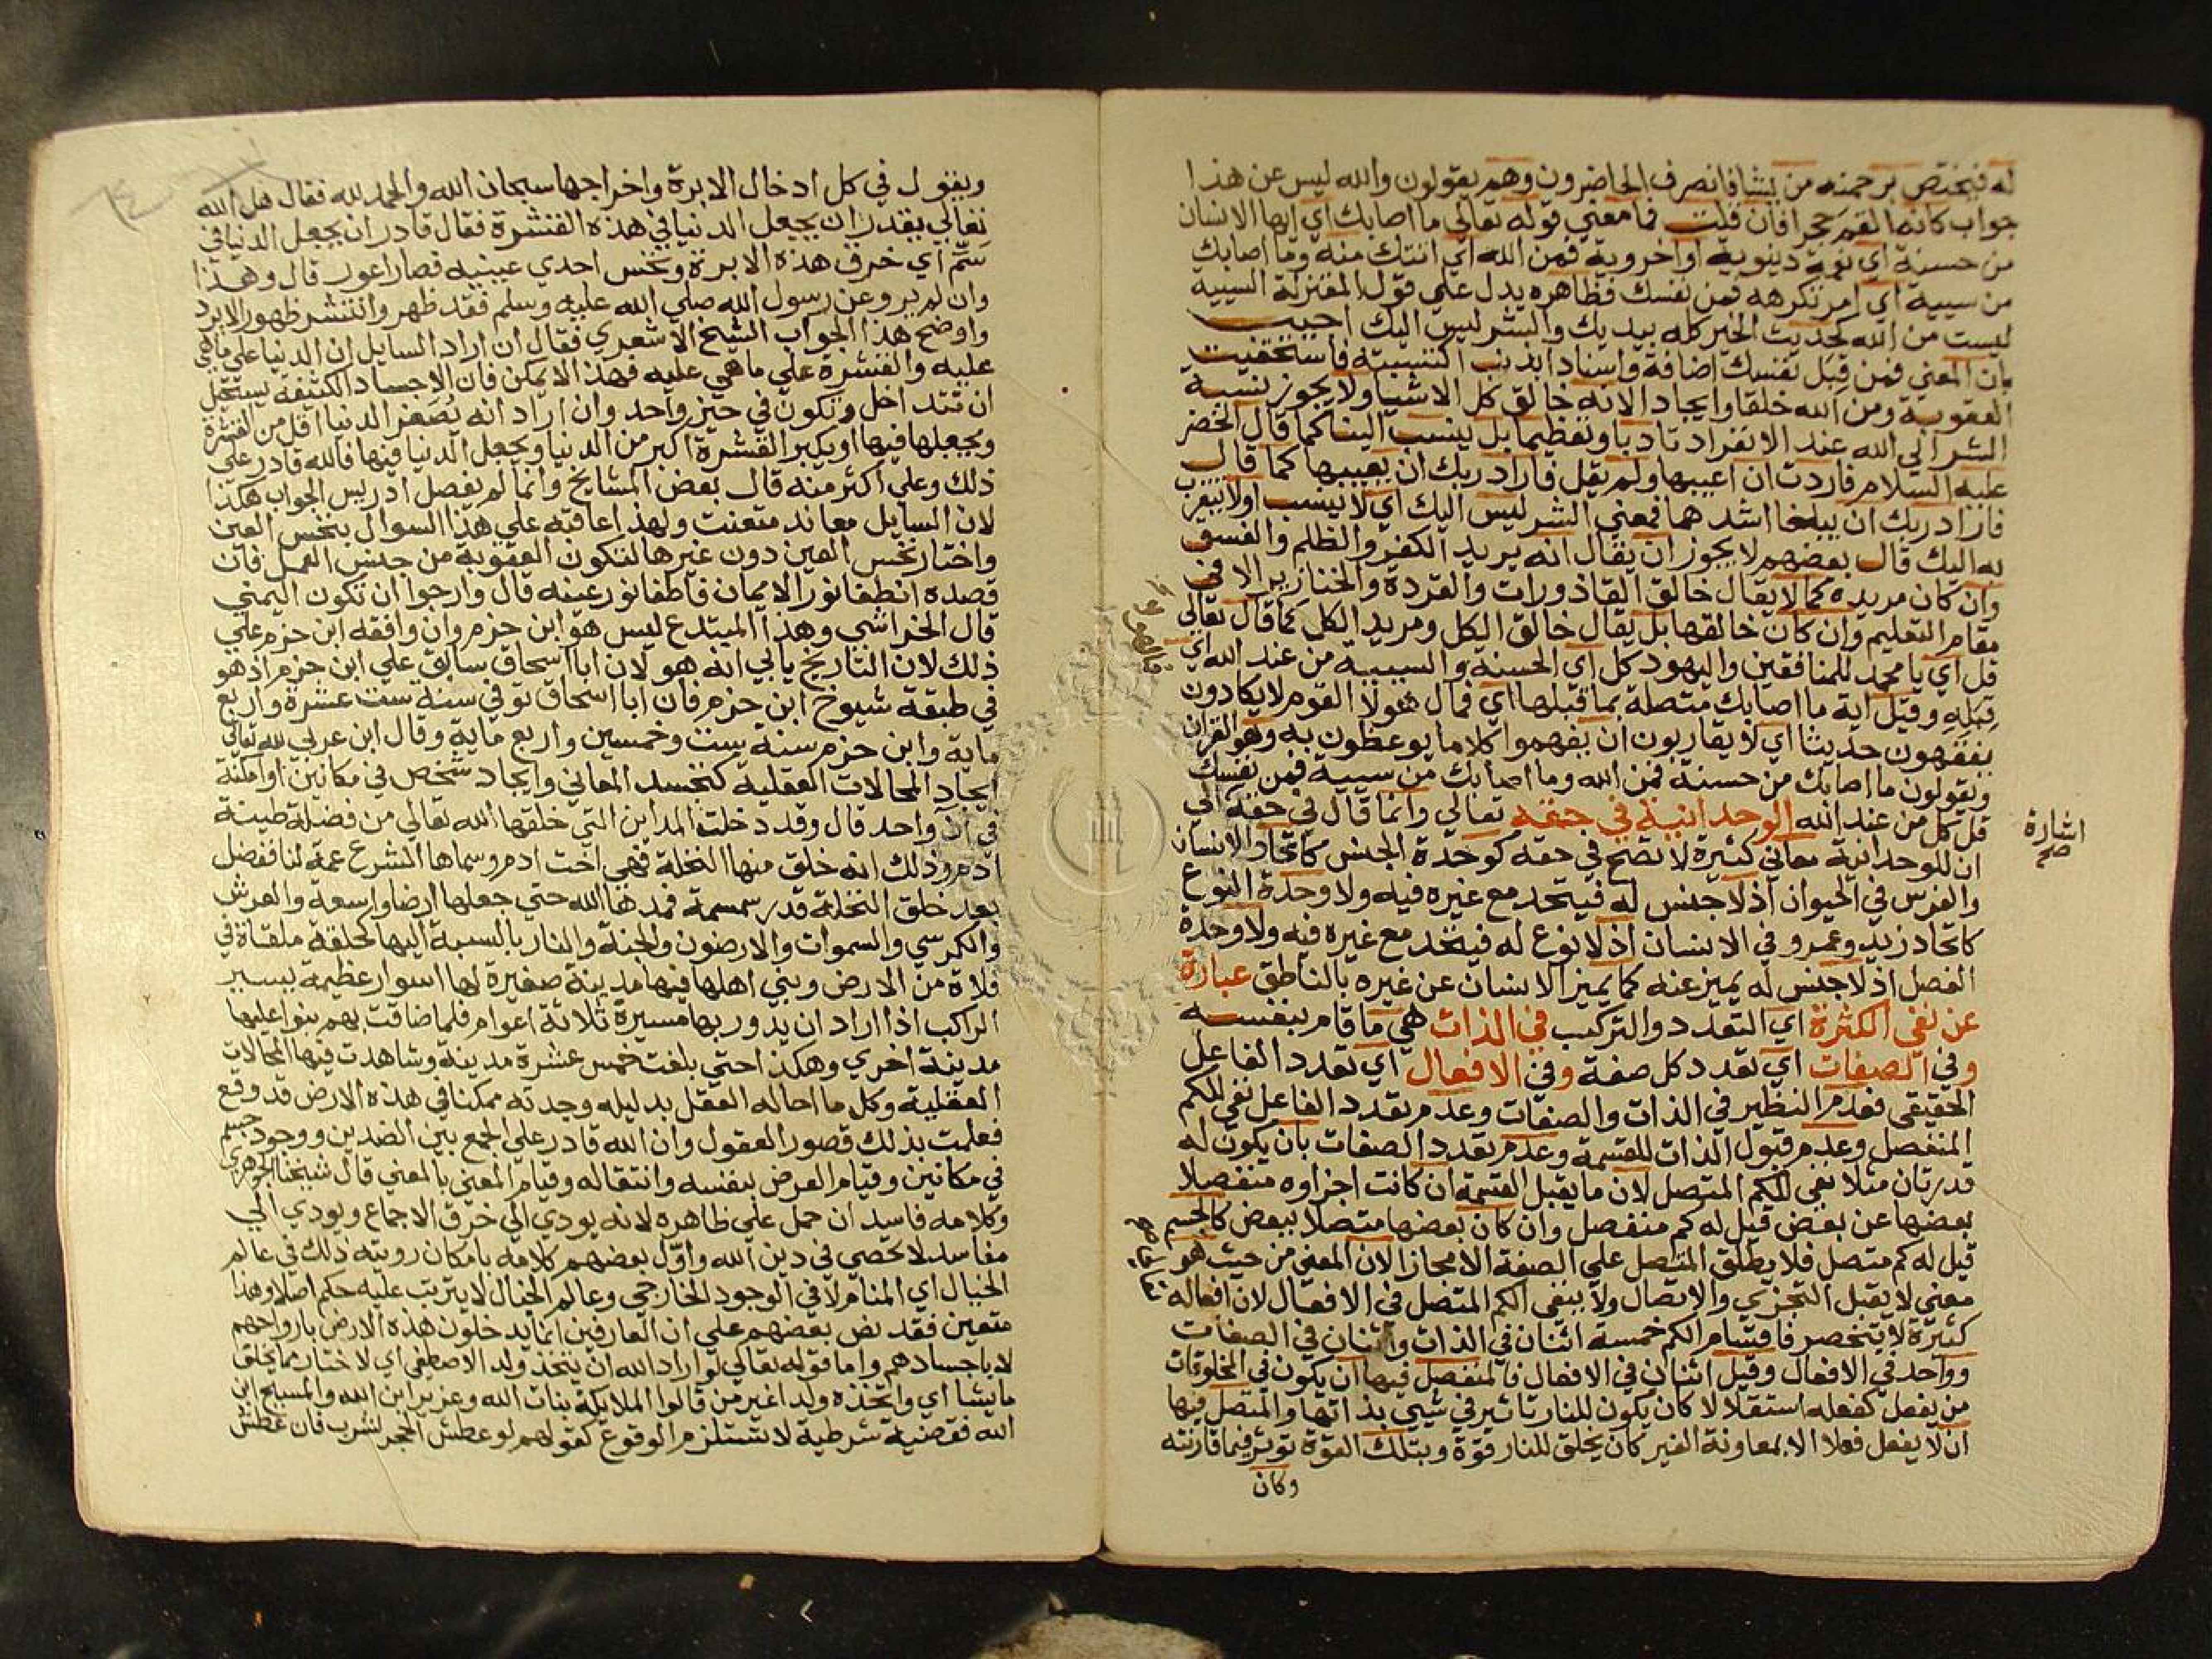 له فيختص برحمته من يشا فانصرف الحاضرون وهم يقولون والله ليس عن هذا
جواب كانه القم حجرا فان قلت فما معني قوله تعالي ما اصابك اي ايها الانسان
من حسنة اي نعمة دينوية او اخروية فمن الله اي اتتك منه وما اصابك
من سيية اي امر تكرهه فمن نفسك فظاهره يدل علي قول المعتزلة السيية
ليست من الله لحديث الخير كله بيديك والشر ليس اليك اجيب
بان المعني فمن قبل نفسك اضافة واسنادا لذنب اكتسبته فاستحقيت
العقوبة ومن الله خلقا وايجادا لانه خالق كل الاشيا ولا يجوز نسبة
الشر الي الله عند الانفراد تادبا وتعظيما بل ينسب الينا كما قال الخضر
عليه السلام فاردت ان اعيبها ولم يقل فاراد ربك ان يعيبها كما قال
فاراد ربك ان يبلغا اشدهما فمعني الشر ليس اليك اي لا ينسب اولا يتقرب
به اليك قال بعضهم لا يجوز ان يقال انه يريد الكفر والظلم والفسق
وان كان مريده كما لا يقال خالق القاذورات والقردة والخنازير الا في
مقام التعليم وان كان خالقها بل يقال خالق الكل ومريد الكل كما قال تعالي
قل اي يا محمد للمنافقين واليهود كل اي الحسنة والسيية من عند الله اي
قبله وقيل اية ما اصابك متصلة بما قبلها اي فمال هولا القوم لا يكادون
يفقهون حديثا اي لا يقاربون ان يفهموا كلاما يوعظون به وهو القران
ويقولون ما اصابك من حسنة فمن الله وما اصابك من سيية فمن نفسك
قل كل من عند الله الوحدانية في حقه تعالي وانما قال في حقه اي
اشارة
صح
ان للوحدانية معاني كثيرة لا تصح في حقه كوحدة الجنس كاتحاد الانسان
والفرس في الحيوان اذ لا جنس له فيتحد مع غيره فيه ولا وحدة النوع
كاتحاد زيد وعمرو في الانسان اذ لا نوع له فيتحد مع غيره فيه ولا وحدة
الفصل اذ لا جنس له يميز عنه كما يميز الانسان عن غيره بالناطق عبارة
عن نفي الكثرة اي التعدد والتركيب في الذات هي ما قام بنفسه
وفي الصفات اي تعدد كل صفة وفي الافعال اي تعدد الفاعل
الحقيقي فعدم النظير في الذات والصفات وعدم تعدد الفاعل نفي للكم
المنفصل وعدم قبول الذات للقسمة وعدم تعدد الصفات بان يكون له
قدرتان مثلا نفي للكم المتصل لان ما يقبل القسمة ان كانت اجزاوه منفصلا
بعضها عن بعض قيل له كم منفصل وان كان بعضها متصلا ببعض كالجسم
قيل له كم متصل فلا يطلق المتصل علي الصفة الا مجازا لان المعني من حيث هو
معني لا يقبل التجزي والاتصال ولا ينفي الكم المتصل في الافعال لان افعاله
كثيرة لا تنحصر فاقسام الكم خمسة اثنان في الذات واثنان في الصفات
وواحد في الافعال وقيل اثنان في الافعال فالمنفصل فيها ان يكون في المخلوقات
من يفعل كفعله استقلالا كان يكون للنار تاثير في شيي بذاتها والمتصل فيها
ان لا يفعل فعلا الا بمعاونة الغير كان يخلق للنار قوة وبتلك القوة توثر فيما قارنته
وكان
ويقول في كل ادخال الابرة واخراجها سبحان الله والحمد لله فقال هل الله
تعالي يقدر ان يجعل الدنيا في هذه القشرة فقال قادر ان يجعل الدنيا في
سم اي خرق هذه الابرة ونخس احدي عينيه فصار اعور قال وهذا
وان لم يرو عن رسول الله صلي الله عليه وسلم فقد ظهر وانتشر ظهورا لا يرد
واوضح هذا الجواب الشيخ الاشعري فقال ان اراد السايل ان الدنيا علي ما هي
عليه والقشرة علي ما هي عليه فهذا لا يمكن فان الاجساد الكثفة يستحيل
ان تتداخل وتكون في حيز واحد وان اراد انه يصغر الدنيا اقل من القشرة
ويجعلها فيها او يكبر القشرة اكبر من الدنيا ويجعل الدنيا فيها فالله قادر علي
ذلك وعلي اكثر منه قال بعض المشايخ وانما لم يفصل ادريس الجواب هكذا
لان السايل معاند متعنت ولهذا عاقبه علي هذا السوال بنخس العين
واختار نخس العين دون غيرها لتكون العقوبة من جنس العمل فان
قصده انطفا نور الايمان فاطفا نور عينه قال وارجوا ان تكون اليمني
قال الخراشي وهذا المبتدع ليس هو ابن حزم وان وافقه ابن حزم علي
ذلك لان التاريخ يابي انه هو لان ابا اسحاق سابق علي ابن حزم اذ هو
في طبقة شيوخ ابن حزم فان ابا اسحاق توفي سنة ست عشرة واربع
ماية وابن حزم سنة ست وخمسين واربع ماية وقال ابن عربي لله تعالي
ايجاد المحالات العقلية كتجسد المعاني وايجاد شخص في مكانين او امكنة
في ان واحد قال وقد دخلت المداين التي خلقها الله تعالي من فضلة طينة
ادم وذلك انه خلق منها النخلة فهي اخت ادم وسماها الشرع عمة لنا ففضل
بعد خلق النخلة قدر سمسمة فمدها الله حتي جعلها ارضا واسعة والعرش
والكرسي والسموات والارضون والجنة والنار بالنسبة اليها كحلقة ملقاة في
فلاة من الارض وبني اهلها فيها مدينة صغيرة لها اسوار عظيمة يسير
الراكب اذا اراد ان يدور بها مسيرة ثلاثة اعوام فلما ضاقت بهم بنوا عليها
مدينة اخري وهكذا حتي بلغت خمس عشرة مدينة وشاهدت فيها المحالات
العقلية وكل ما احاله العقل بدليله وجدته ممكنا في هذه الارض قد وقع
فعلمت بذلك قصور العقول وان الله قادر علي الجمع بين الضدين ووجود جسم
في مكانين وقيام العرض بنفسه وانتقاله وقيام المعني بالمعني قال شيخنا الجوهري
وكلامه فاسد ان حمل علي ظاهره لانه يودي الي خرق الاجماع ويودي الي
مفاسد لا تحصي في دين الله واول بعضهم كلامه بامكان رويته ذلك في عالم
الخيال اي المنام لا في الوجود الخارجي وعالم الخيال لا يترتب عليه حكم اصلا وهذا
متعين فقد نص بعضهم علي ان العارفين انما يدخلون هذه الارض بارواحهم
لا باجسادهم واما قوله تعالي لو اراد الله ان يتخذ ولدا لاصطفي اي لاختار مما يخلق
ما يشا اي واتخذه ولدا غير من قالوا الملايكة بنات الله وعزير ابن الله والمسيح ابن
الله فقضية شرطية لا تستلزم الوقوع كقولهم لو عطش الحجر لشرب فان عطش